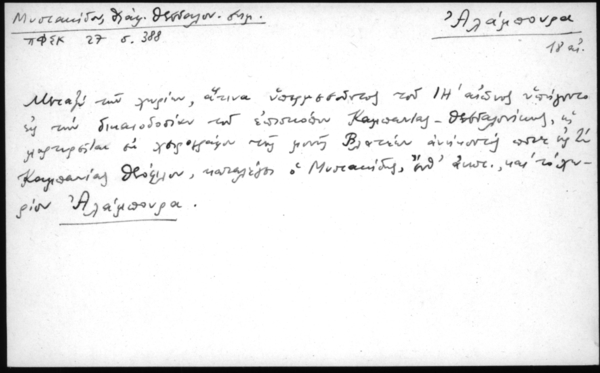 Μυστακίδης Διάφ. Θεσσαλον. σημ.
ΠΦΣΚ 27 σ. 388
Ἀλάμπουρα
18 αἰ.
Μεταξὺ τῶν χωρίων, ἅτινα τοῦ ΙΗ' αἰῶνος ὑπήγοντο
εἰς τὴν δικαιοδοσίαν τοῦ ἐπισκόπου Καμπανίας - Θεσσαλονίκης, ὡς
μαρτυρεῖται ἐκ χειρογράφου τῆς μονῆς Βλατέων ἀνήκοντός ποτε εἰς τὸν
Καμπανίας Θεόφιλον, καταλέγει ὁ Μυστακίδης, ἔνθ' ἀνωτ., καὶ τὸ χω-
ρίον Ἀλάμπουρα.